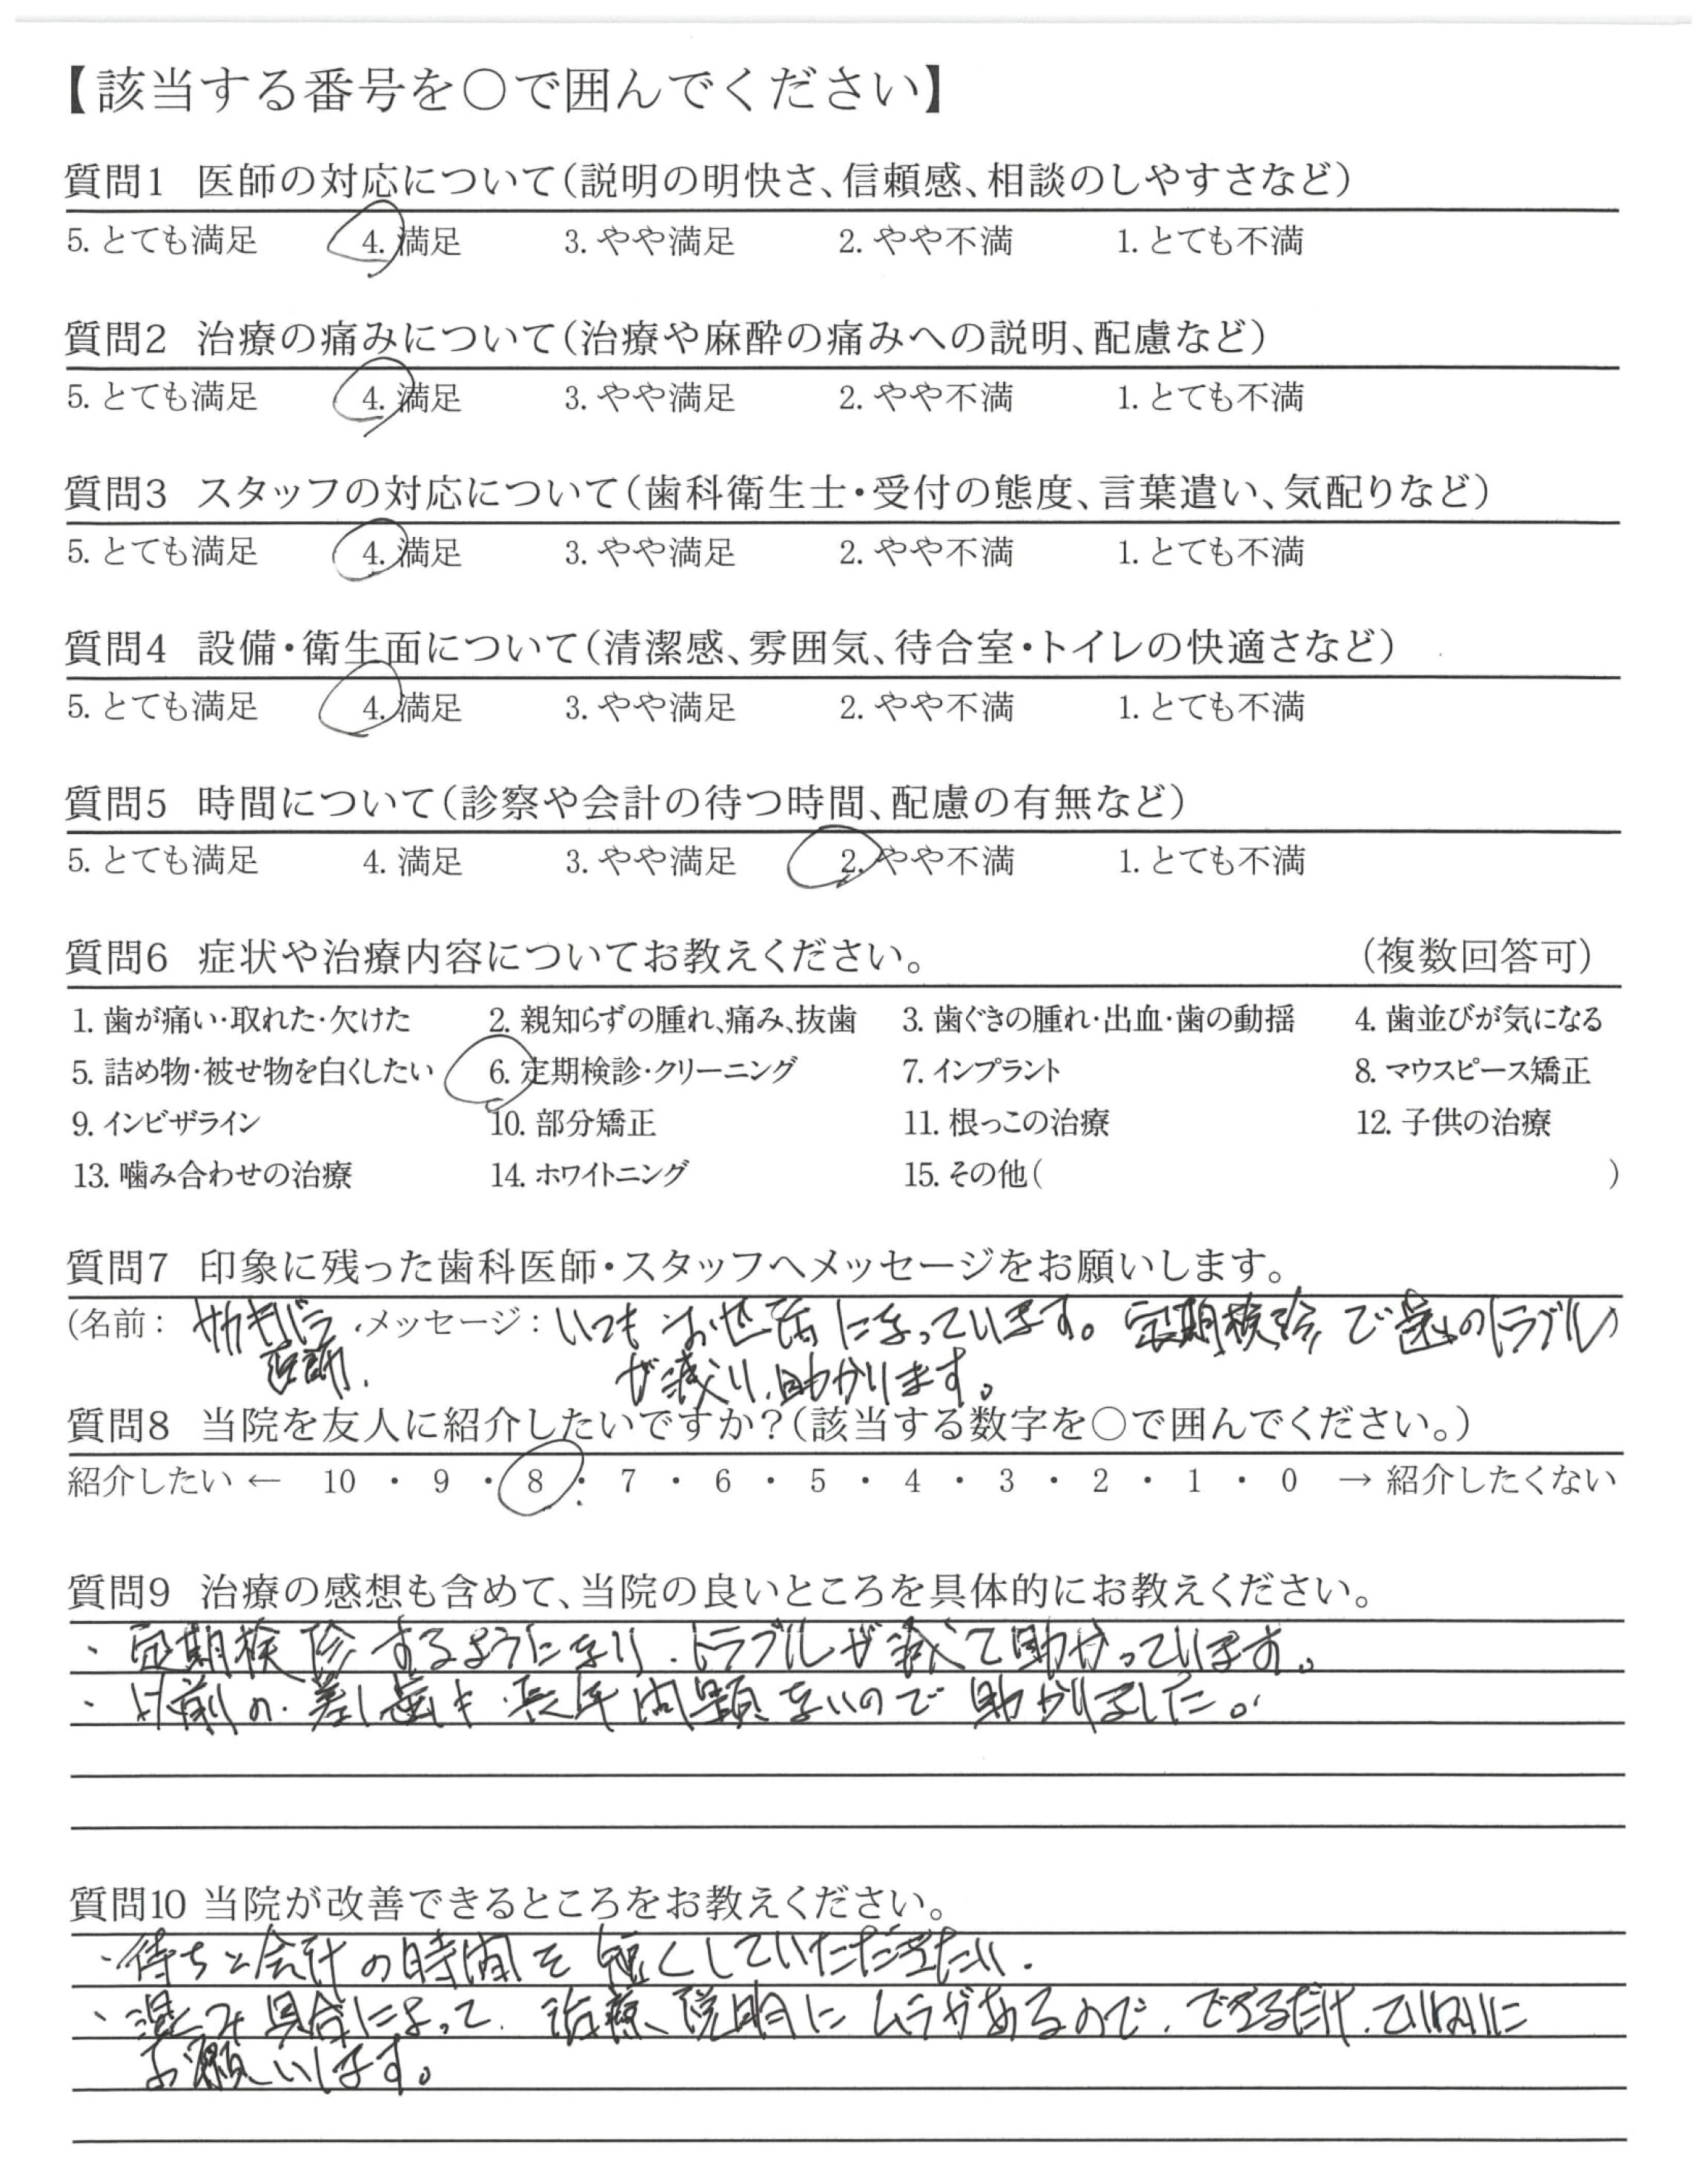 【該当する番号を〇で囲んでください】
質問1 医師の対応について(説明の明快さ、信頼感、相談のしやすさなど)
5. とても満足 4. 満足 3. やや満足 2. やや不満 1. とても不満
質問2 治療の痛みについて(治療や麻酔の痛みへの説明、配慮など)
5. とても満足 4. 満足 3. やや満足 2. やや不満 1. とても不満
質問3 スタッフの対応について(歯科衛生士・受付の態度、言葉遣い、気配りなど)
5. とても満足 4. 満足 3. やや満足 2. やや不満 1. とても不満
質問4 設備・衛生面について(清潔感、雰囲気、待合室・トイレの快適さなど)
5. とても満足 4. 満足 3. やや満足 2. やや不満 1. とても不満
質問5 時間について(診察や会計の待つ時間、配慮の有無など)
5. とても満足 4. 満足 3. やや満足 2. やや不満 1. とても不満
質問6 症状や治療内容についてお教えください。 (複数回答可)
1. 歯が痛い・取れた・欠けた 2. 親知らずの腫れ、痛み、抜歯 3. 歯ぐきの腫れ・出血・歯の動揺 4. 歯並びが気になる
5. 詰め物・被せ物を白くしたい 6. 定期検診・クリーニング 7. インプラント 8. マウスピース矯正
9. インビザライン 10. 部分矯正 11. 根っこの治療 12. 子供の治療
13. 噛み合わせの治療 14. ホワイトニング 15. その他( )
質問7 印象に残った歯科医師・スタッフへメッセージをお願いします。
(名前: サカキバラ メッセージ: いつもお世話になっています。定期検診で歯のトラブル
医師. が減り、助かります。
質問8 当院を友人に紹介したいですか?(該当する数字を〇で囲んでください。)
紹介したい ← 10 ・ 9 ・ 8 ・ 7 ・ 6 ・ 5 ・ 4 ・ 3 ・ 2 ・ 1 ・ 0 → 紹介したくない
質問9 治療の感想も含めて、当院の良いところを具体的にお教えください。
・定期検診するようになり、トラブルが減て助かっています。
・以前の差し歯も長年問題ないので助かりました。
質問10 当院が改善できるところをお教えください。
・待ちと会計の時間を短くしていただきたい.
・混み具合によって、治療、説明にムラがあるので、できるだけ、ていねいに
お願いします。